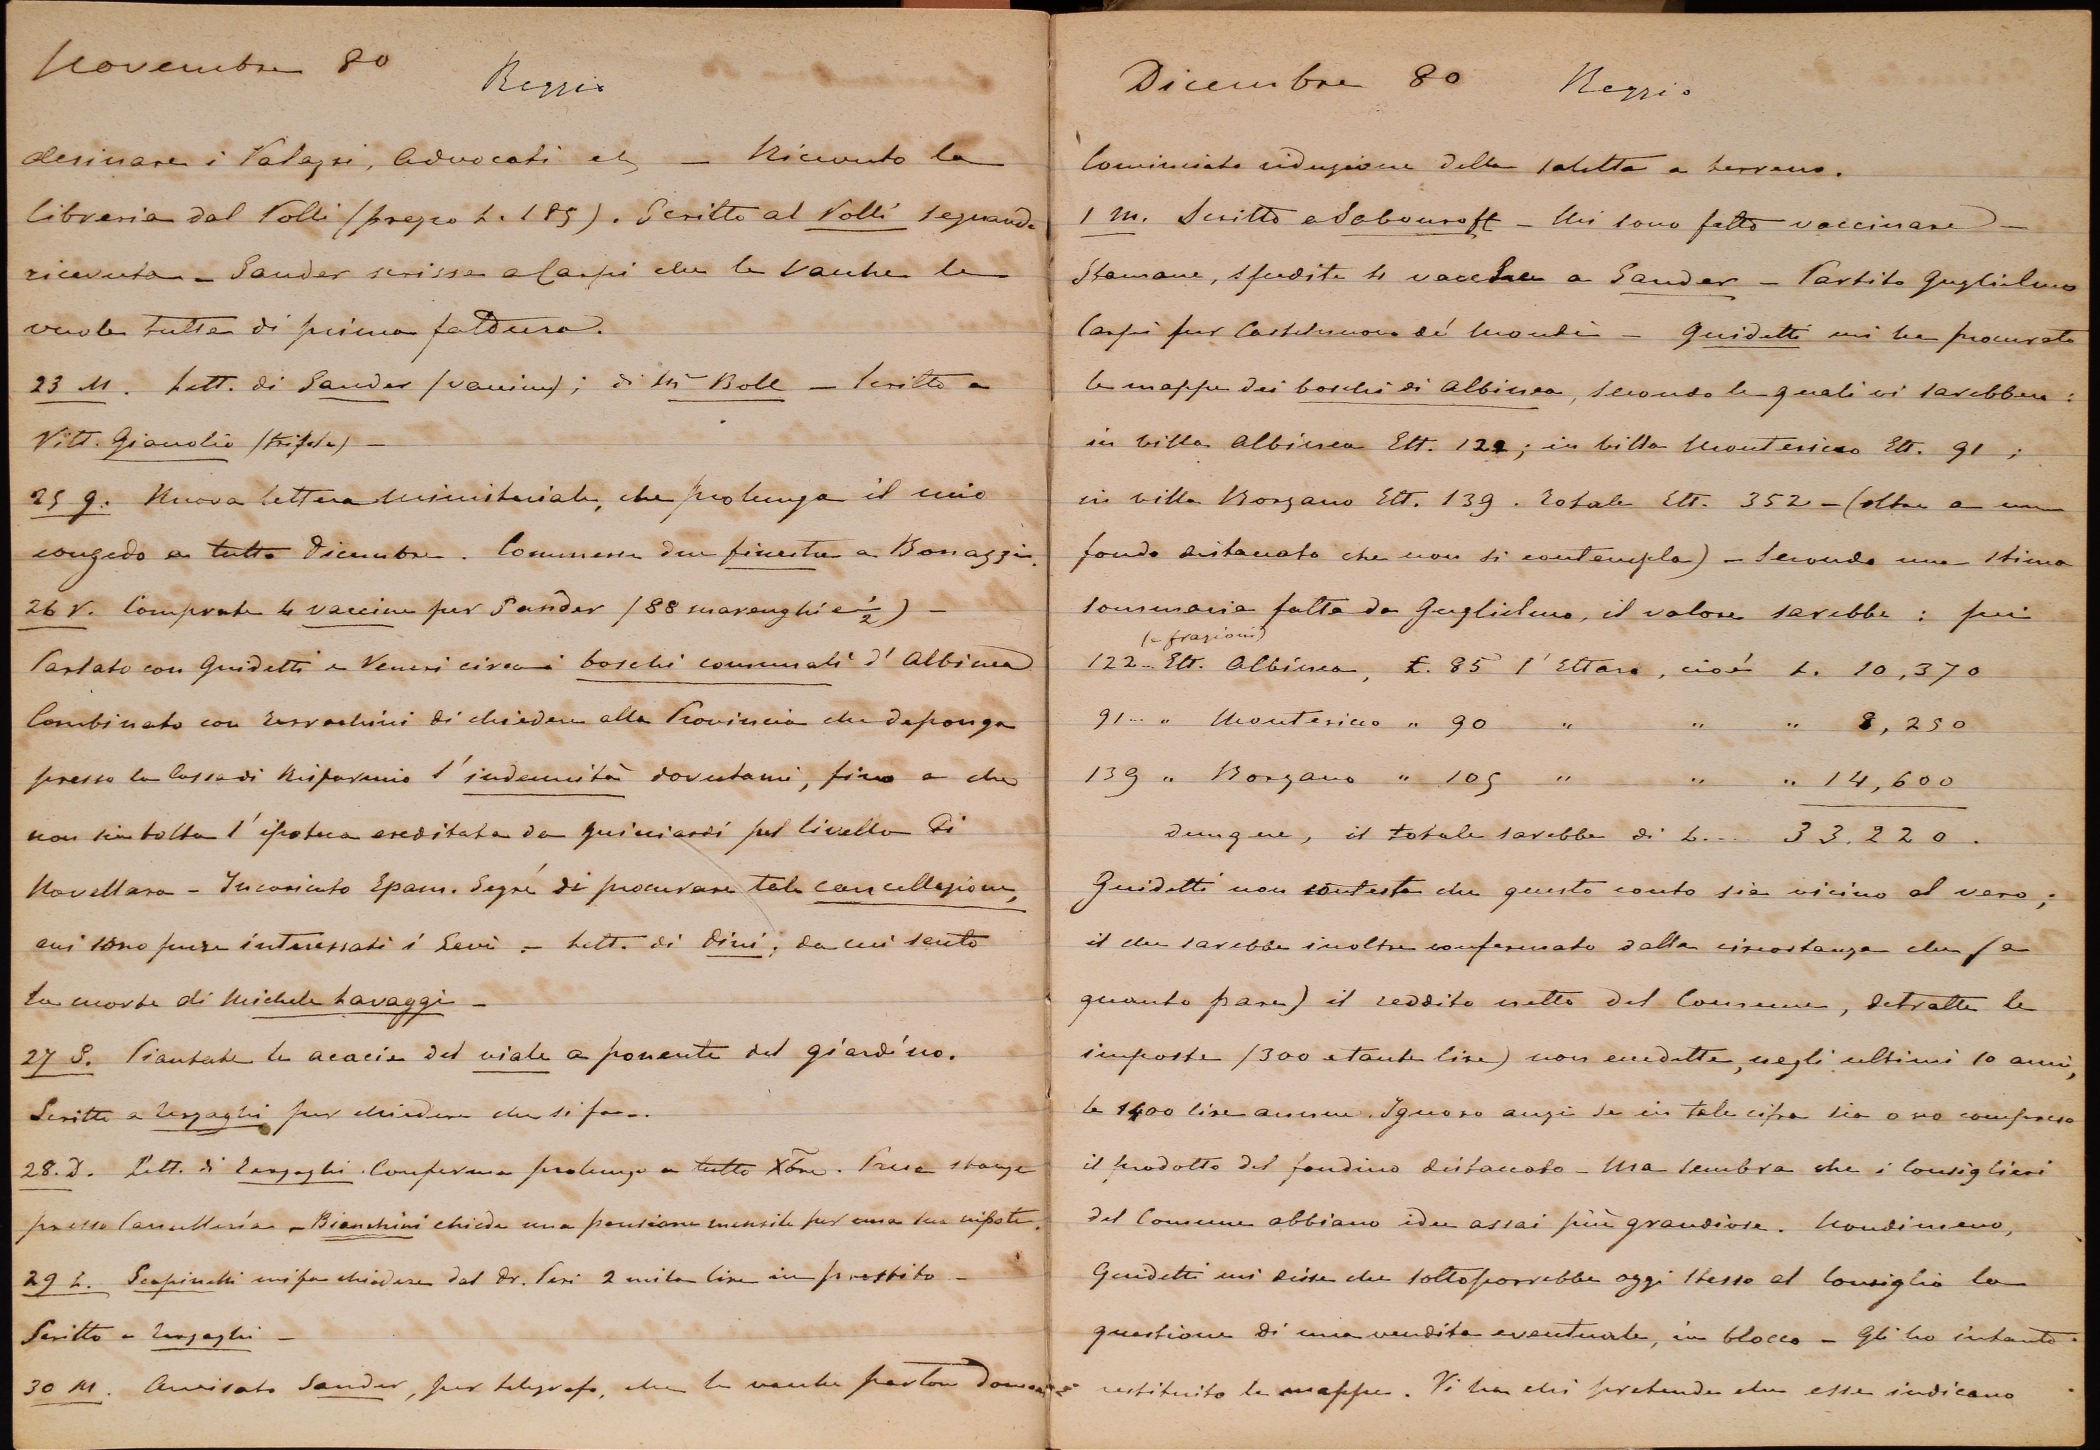 Novembre 80 Reggio
desinare i Valagri, Advocati etc — Ricevuto la
libreria dal Volli (prezzo L. 185). Scritto al Volli segnando
ricevuta — Sander scrisse a Carpi che le vacche le
vuole tutte di prima
23 M. Lett. di Sander (vaccine); di Boll — Scritto a
Vitt. Gianolio
25 G. Nuova lettera ministeriale, che prolunga il mio
congedo a tutto Dicembre. Commesse due finestre a Bonazzi.
26 V. Comprate 4 vaccine per Sander (88 marenghi e 1/2) —
Parlato con Guidetti e Veneri circa i boschi comunali d'Albinea
Combinato con Terrachini di chiedere alla Provincia che deponga
presso la Cassa di Risparmio l'indennità dovutami, fino a che
non sia tolta l'ipoteca ereditata da Guicciardi pel livello di
Novellara — Incaricato Epam. Segré di procurare tale cancellazione,
cui sono pure interessati i Levi — Lett. di Dini; da cui sento
la morte di Michele Lavaggi —
27 S. Piantate le acacie del viale a ponente del giardino.
Scritto a Terzaghi per chiedere che si fa..
28. D. Lett. di Terzaghi. Conferma prolungo a tutto Xbre. Prese stanze
presso Cancelleria — Bianchini chiede una pensione mensile per una sua nipote.
29 L. Scapinelli mi fa chiedere dal Dr. Peri 2 mila lire in prestito —
Scritto a Terzaghi —
30 M. Avvisato Sander, per telegrafo, che le vacche parton domani
Dicembre 80 Reggio
Cominciata riduzione della saletta a terreno.
1 M. Scritto a Sabouroff — Mi sono fatto vaccinare —
Stamane, spedite 4 vacche a Sander — Partito Guglielmo
Carpi per Castelnuovo de' Monti — Guidetti mi ha procurato
le mappe dei boschi di Albinea, secondo le quali vi sarebbero:
in villa Albinea Ett. 122; in villa Montericco Ett. 91;
in villa Borzano Ett. 139. Totale Ett. 352 — (oltre a un
fondo distaccato che non si contempla) — Secondo una stima
sommaria fatta da Guglielmo, il valore sarebbe: pei
(e frazioni)
122 — Ett. Albinea, £. 85 l'Ettaro, cioè L. 10,370
91 — " Montericco " 90 " " " 8,250
139 " Borzano " 105 " " " 14,600
dunque, il totale sarebbe di L... 33.220.
Guidetti non contesta che questo conto sia vicino al vero;
il che sarebbe inoltre confermato dalla circostanza che (a
quanto pare) il reddito netto del Comune, detratte le
imposte (300 e tante lire) non eccedette, negli ultimi 10 anni,
le 1400 lire annue. Ignoro anzi se in tale cifra sia o no compreso
il prodotto del fondino distaccato — Ma sembra che i Consiglieri
del Comune abbiano idee assai più grandiose. Nondimeno,
Guidetti mi disse che sottoporrebbe oggi stesso al Consiglio la
questione di una vendita eventuale, in blocco — Gli ho intanto
restituito le mappe. Vi ha chi pretende che esse indicano